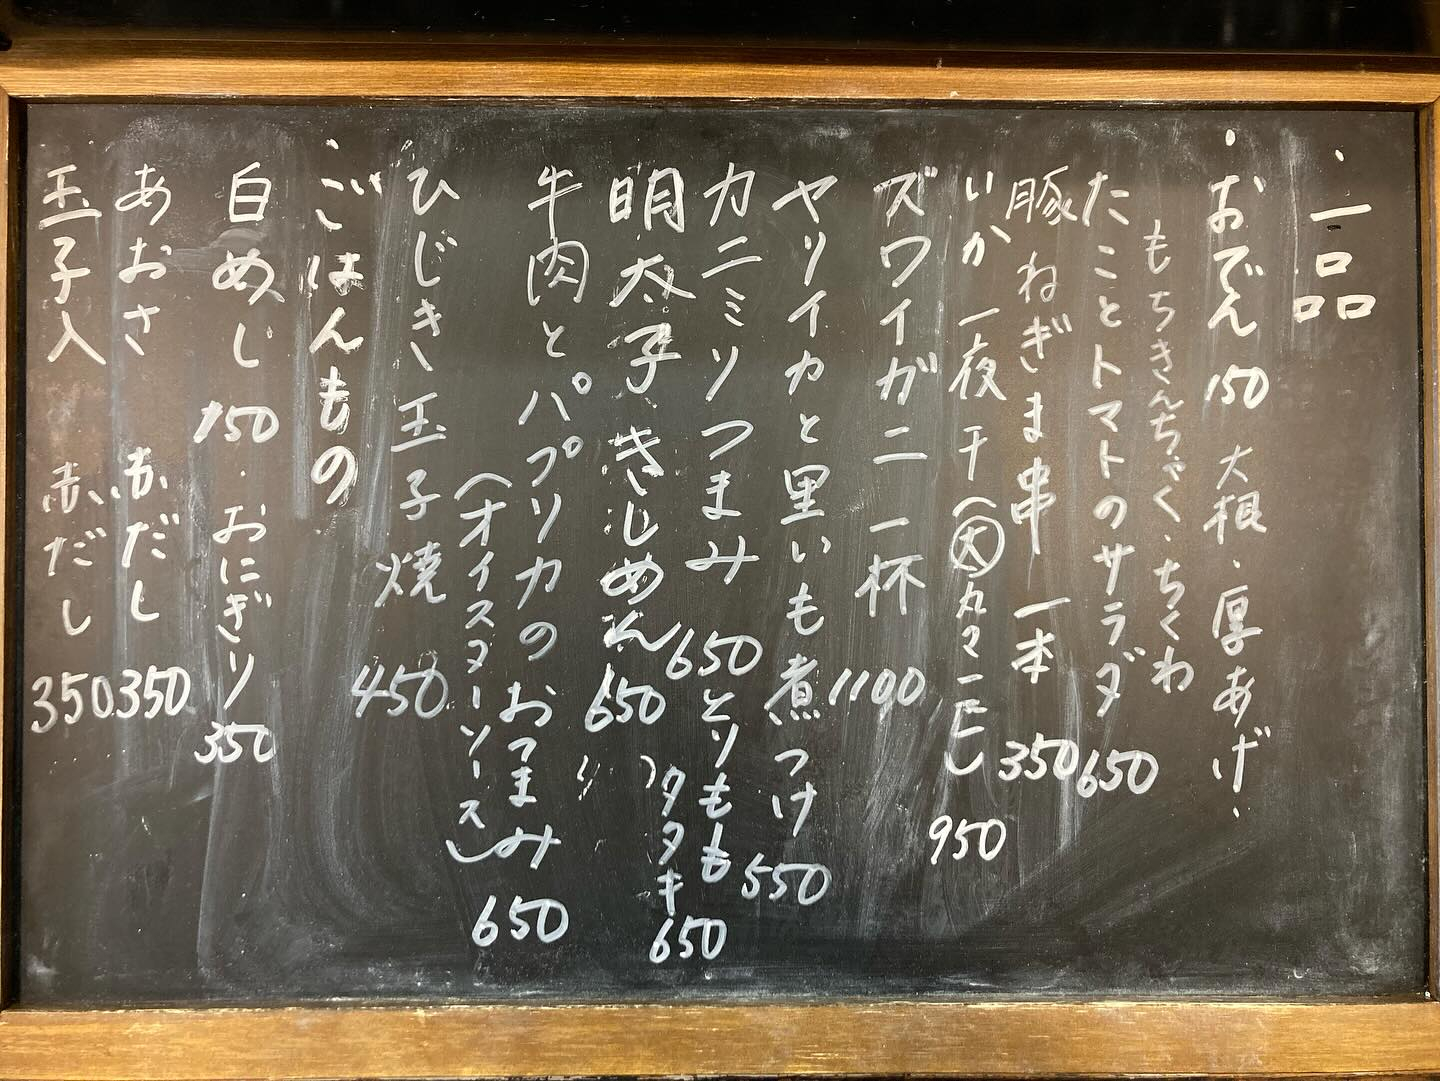 ・一品
・おでん 150 大根・厚あげ・
もちきんちゃく・ちくわ
たことトマトのサラダ 650
豚ねぎま串 一本 350
いか一夜干(大)丸々一匹 950
ズワイガニ 一杯 1100
ヤリイカと里いも煮つけ 550
カニミソつまみ 650
とりもも
タタキ 650
明太子きしめん 650
牛肉とパプリカのおつまみ 650
(オイスターソース)
ひじき玉子焼 450
・ごはんもの
白めし 150・おにぎり 350
あおさ 赤だし 350
玉子入 赤だし 350